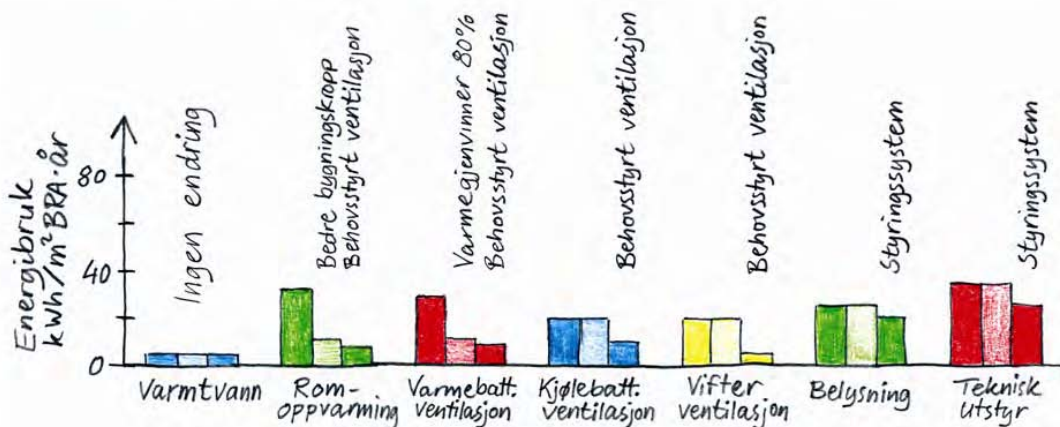 Energibruk
kWh/m² BRA·år
80
40
0
Ingen endring
Bedre bygningskropp
Behovsstyrt ventilasjon
Varmegjenvinner 80%
Behovsstyrt ventilasjon
Behovsstyrt ventilasjon
Behovsstyrt ventilasjon
Styringssystem
Styringssystem
Varmtvann
Rom-
oppvarming
Varmebatt.
ventilasjon
Kjølebatt.
ventilasjon
Vifter
ventilasjon
Belysning
Teknisk
utstyr